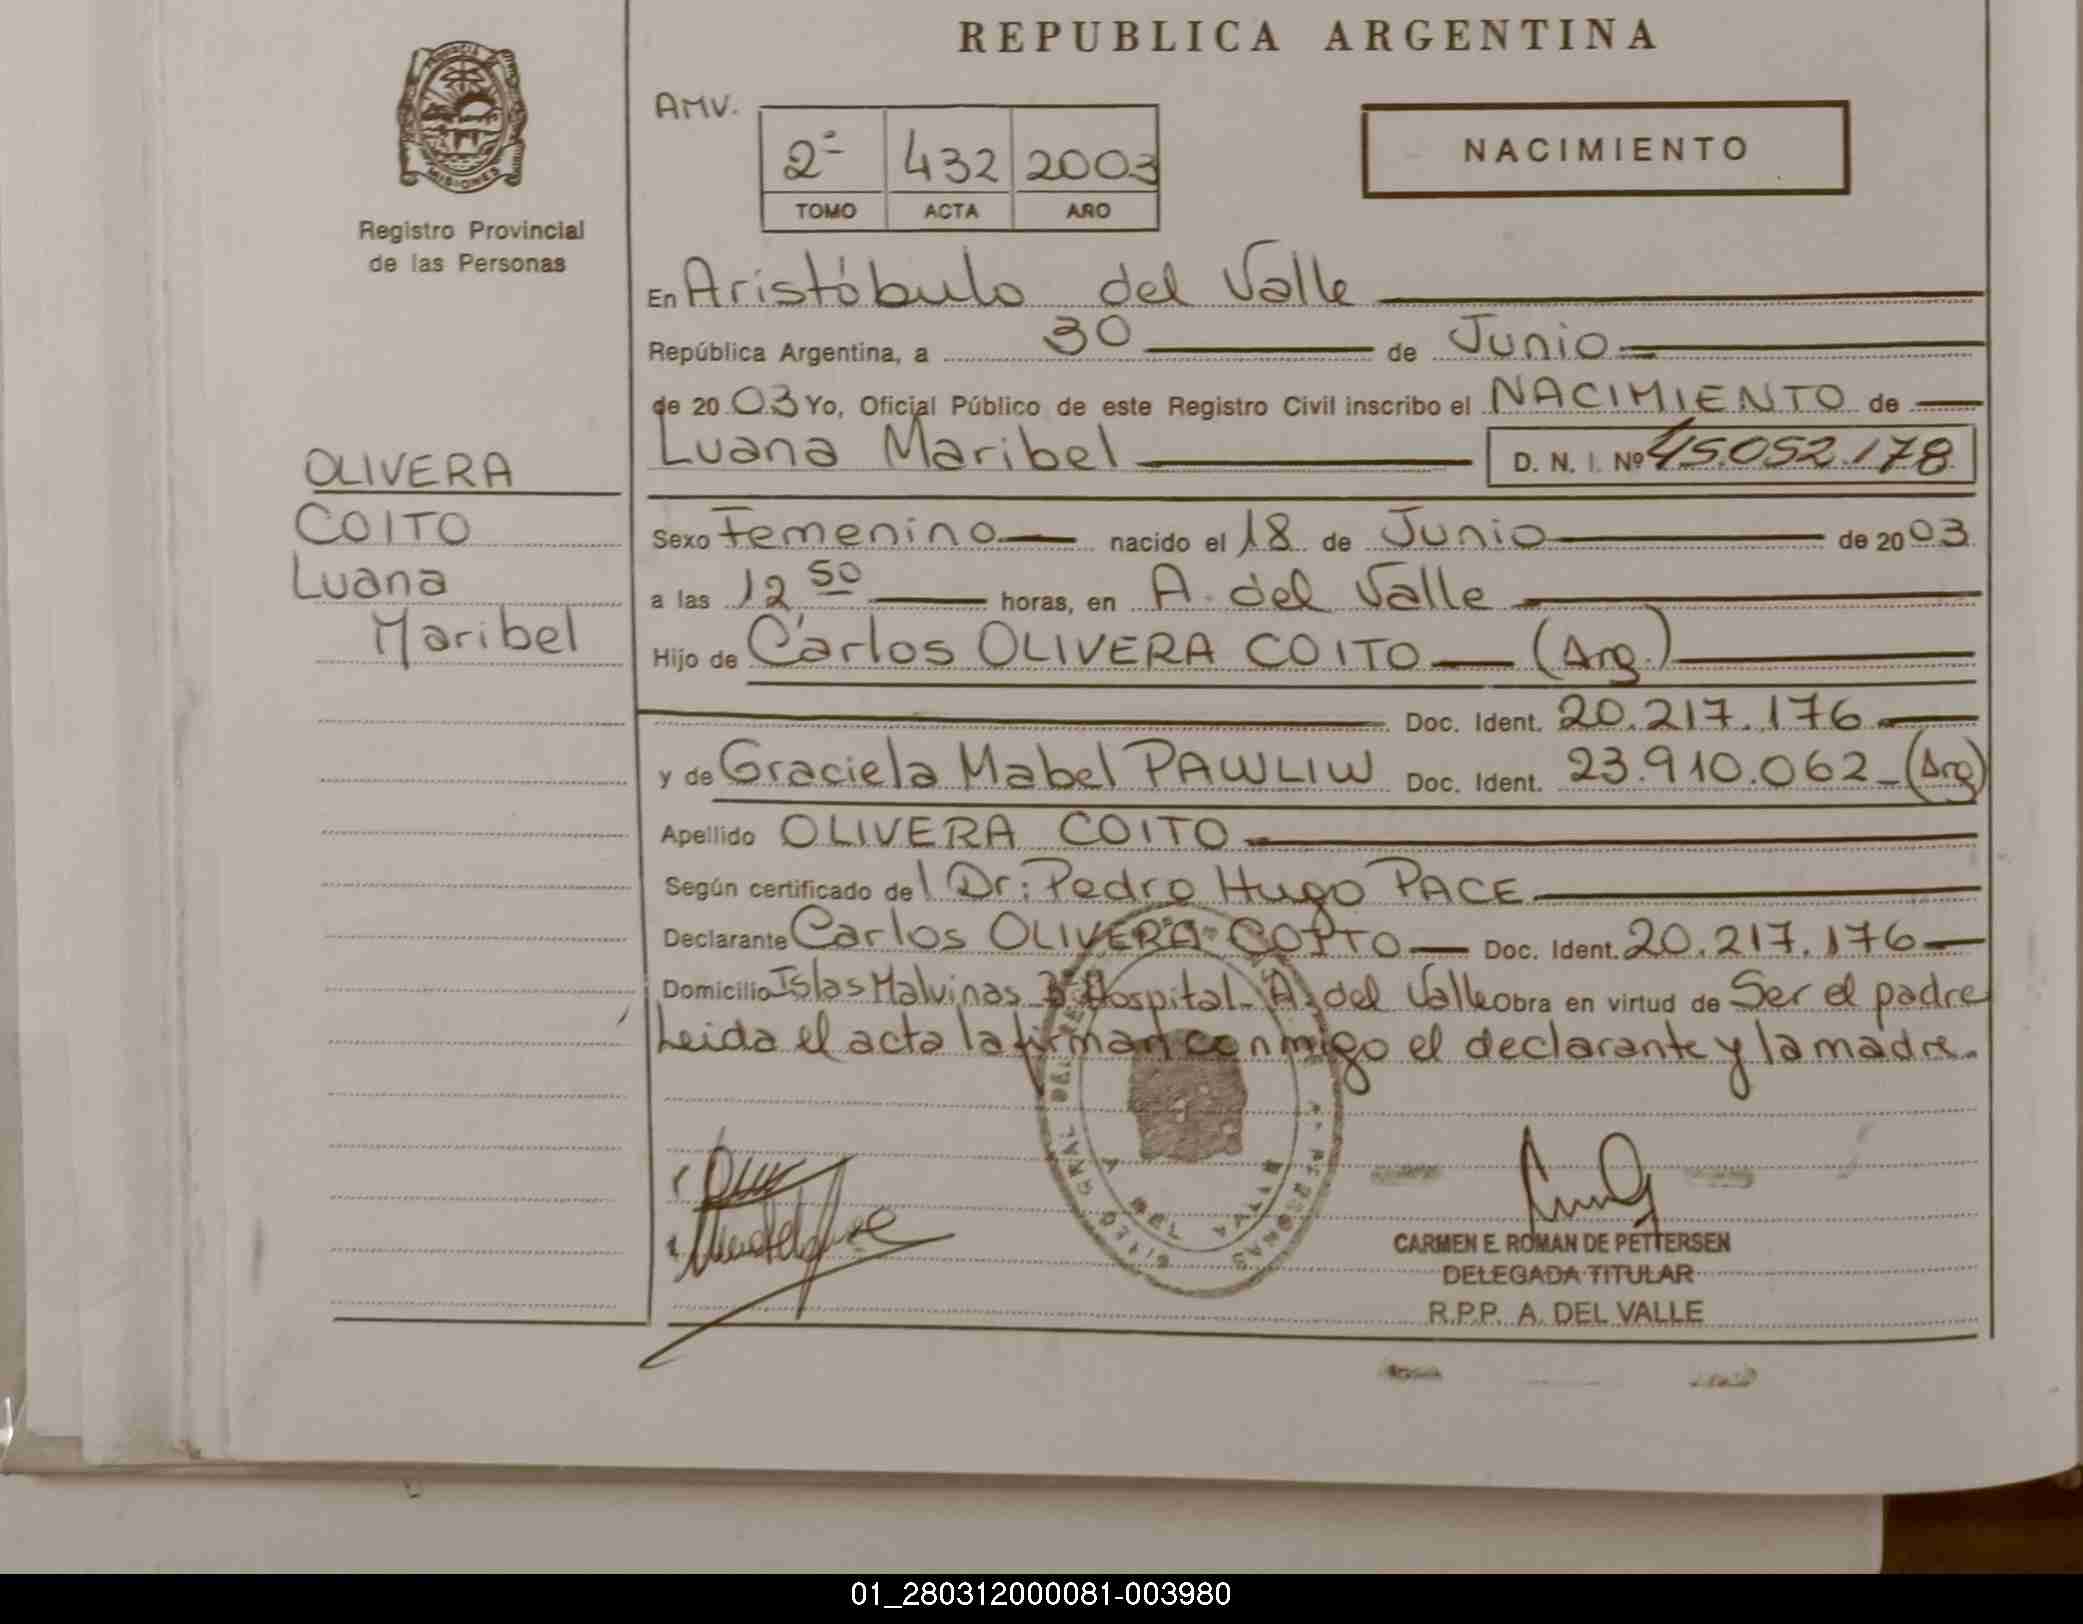 REPUBLICA ARGENTINA
AMV.
2ª 432 2003
TOMO ACTA AÑO
NACIMIENTO
PROVINCIA
MISIONES
Registro Provincial
de las Personas
OLIVERA
COITO
Luana
Maribel
En Aristóbulo del Valle
República Argentina, a 30 de Junio
de 20 03 Yo, Oficial Público de este Registro Civil inscribo el NACIMIENTO de
Luana Maribel D. N. I. Nº 45.052.178
Sexo Femenino nacido el 18 de Junio de 20 03
a las 12 50 horas, en A. del Valle
Hijo de Carlos OLIVERA COITO (Arg.)
Doc. Ident. 20.217.176
y de Graciela Mabel PAWLIW Doc. Ident. 23.910.062 (Arg)
Apellido OLIVERA COITO
Según certificado del Dr: Pedro Hugo PACE
Declarante Carlos OLIVERA COITO Doc. Ident. 20.217.176
Domicilio Islas Malvinas Bº Hospital A. del Valle obra en virtud de Ser el padre
Leida el acta la firman conmigo el declarante y la madre.
DEL VALLE
CARMEN E. ROMAN DE PETTERSEN
DELEGADA TITULAR
R.P.P. A. DEL VALLE
01_280312000081-003980